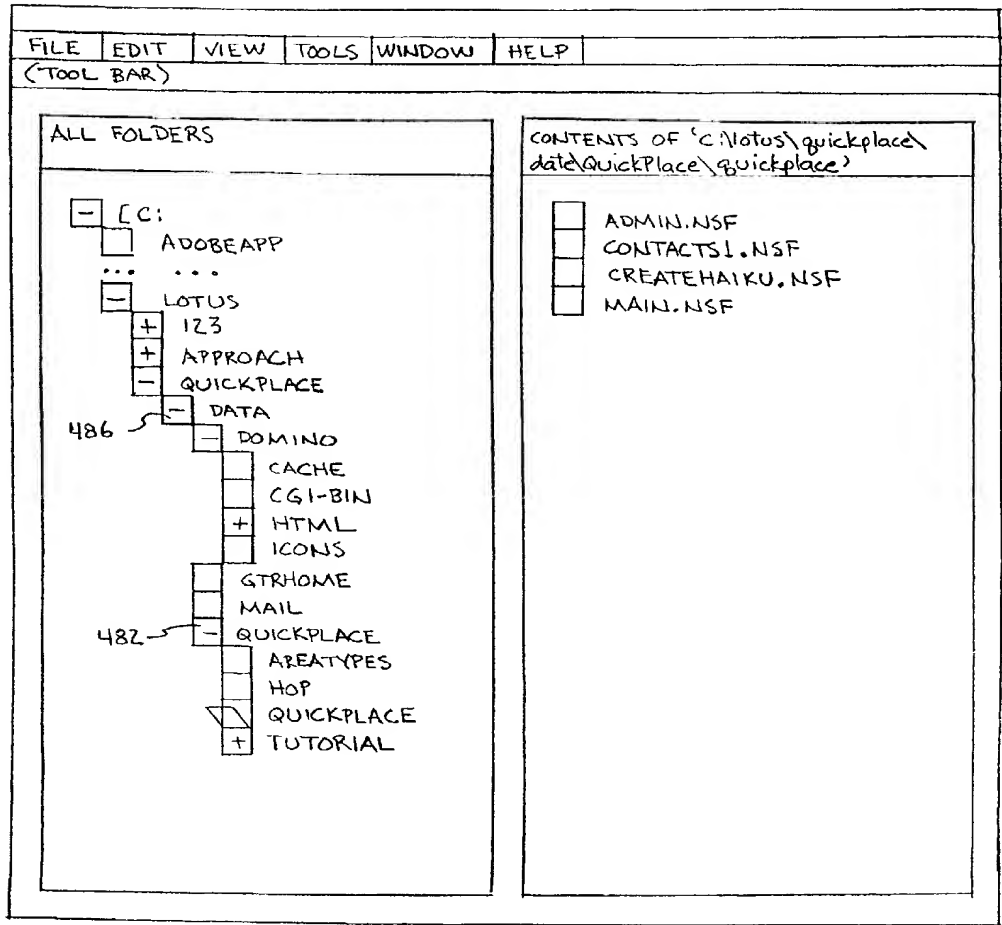 FILE EDIT VIEW TOOLS WINDOW HELP
(TOOL BAR)
ALL FOLDERS
[C:
ADOBEAPP
... ...
LOTUS
+ 123
+ APPROACH
- QUICKPLACE
- DATA
486
- DOMINO
CACHE
CGI-BIN
+ HTML
ICONS
GTRHOME
MAIL
482
- QUICKPLACE
AREATYPES
HOP
QUICKPLACE
+ TUTORIAL
CONTENTS OF 'C:\lotus\quickplace\
date\QuickPlace\quickplace'
ADMIN.NSF
CONTACTS1.NSF
CREATEHAIKU.NSF
MAIN.NSF